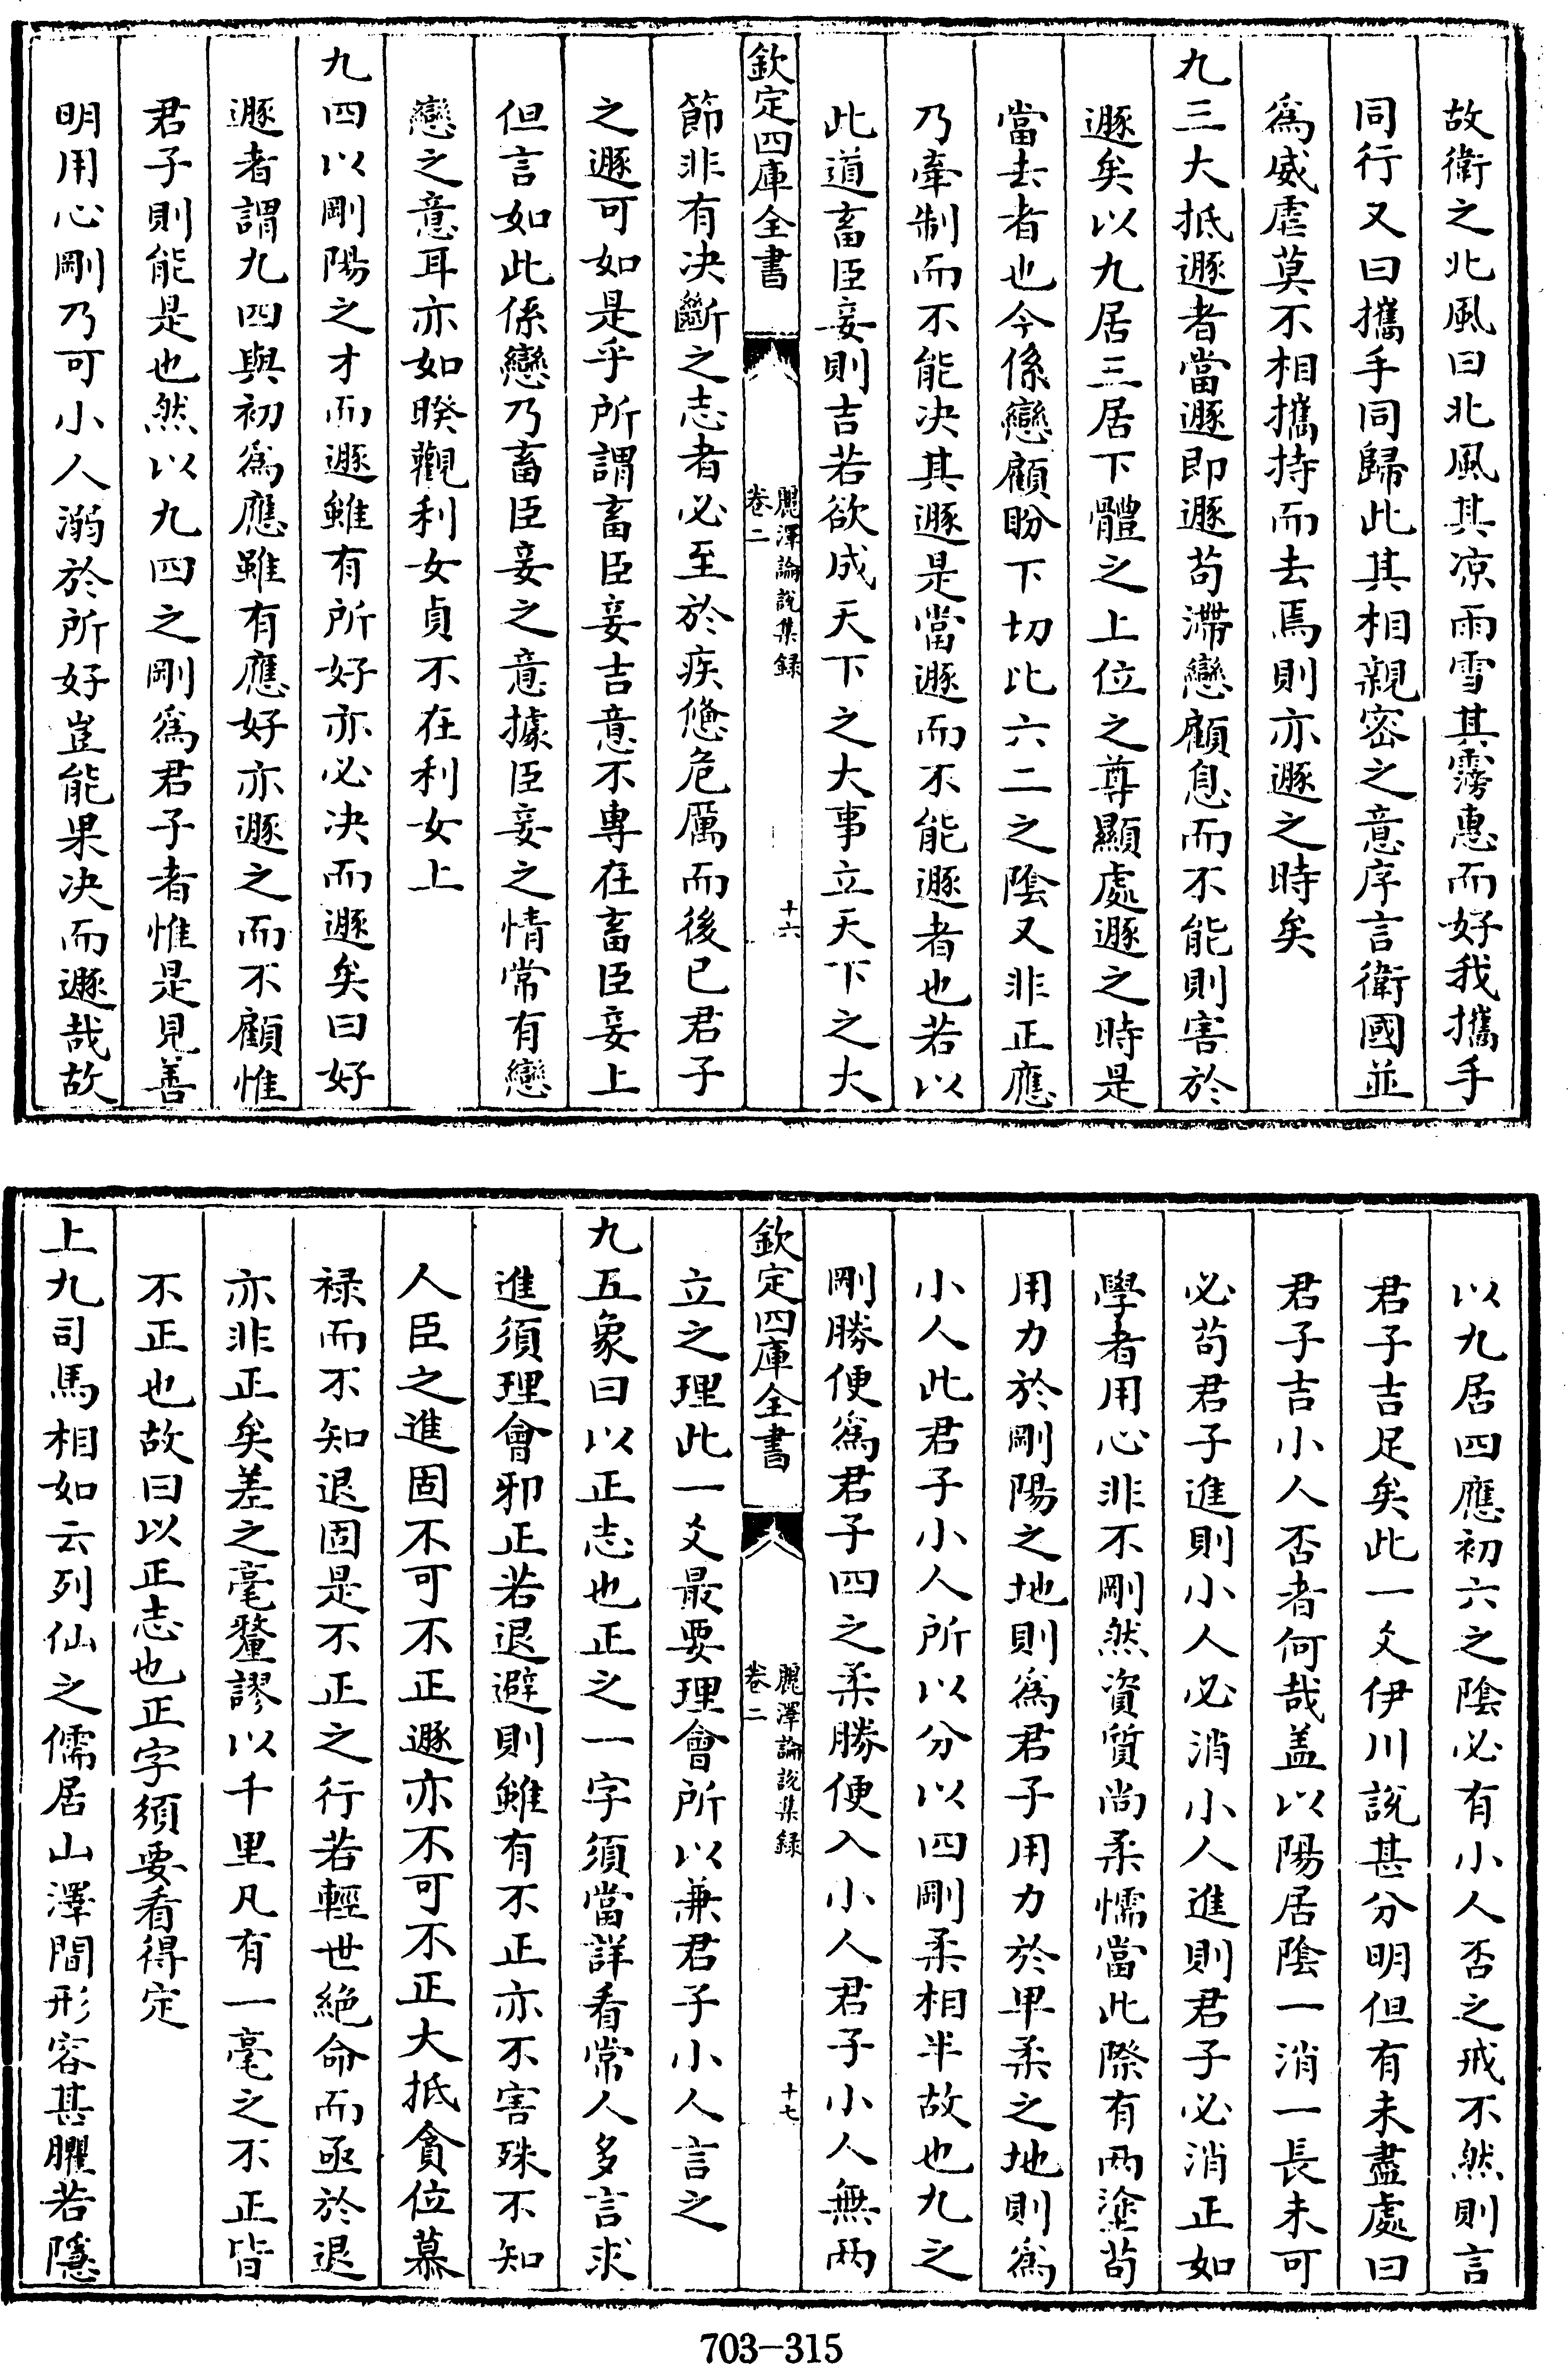 故衛之北風曰北風其凉雨雪其雱惠而好我攜手
同行又曰攜手同歸此其相親密之意序言衛國並
爲威虐莫不相攜持而去焉則亦遯之時矣
九三大抵遯者當遯即遯苟滯戀顧息而不能則害於
遯矣以九居三居下體之上位之尊顯處遯之時是
當去者也今係戀顧盼下切比六二之陰又非正應
乃牽制而不能决其遯是當遯而不能遯者也若以
此道畜臣妾則吉若欲成天下之大事立天下之大
欽定四庫全書
麗澤論說集録
卷二
十六
節非有决斷之志者必至於疾憊危厲而後已君子
之遯可如是乎所謂畜臣妾吉意不專在畜臣妾上
但言如此係戀乃畜臣妾之意據臣妾之情常有戀
戀之意耳亦如睽觀利女貞不在利女上
九四以剛陽之才而遯雖有所好亦必决而遯矣曰好
遯者謂九四與初爲應雖有應好亦遯之而不顧惟
君子則能是也然以九四之剛爲君子者惟是見善
明用心剛乃可小人溺於所好豈能果决而遯哉故
以九居四應初六之陰必有小人否之戒不然則言
君子吉足矣此一爻伊川說甚分明但有未盡處曰
君子吉小人否者何哉盖以陽居陰一消一長未可
必苟君子進則小人必消小人進則君子必消正如
學者用心非不剛然資質尚柔懦當此際有兩塗苟
用力於剛陽之地則爲君子用力於卑柔之地則爲
小人此君子小人所以分以四剛柔相半故也九之
剛勝便爲君子四之柔勝便入小人君子小人無兩
欽定四庫全書
麗澤論說集録
卷二
十七
立之理此一爻最要理會所以兼君子小人言之
九五象曰以正志也正之一字須當詳看常人多言求
進須理會邪正若退避則雖有不正亦不害殊不知
人臣之進固不可不正遯亦不可不正大抵貪位慕
禄而不知退固是不正之行若輕世絶命而亟於退
亦非正矣差之毫釐謬以千里凡有一毫之不正皆
不正也故曰以正志也正字須要看得定
上九司馬相如云列仙之儒居山澤間形容甚臞若隱
703-315